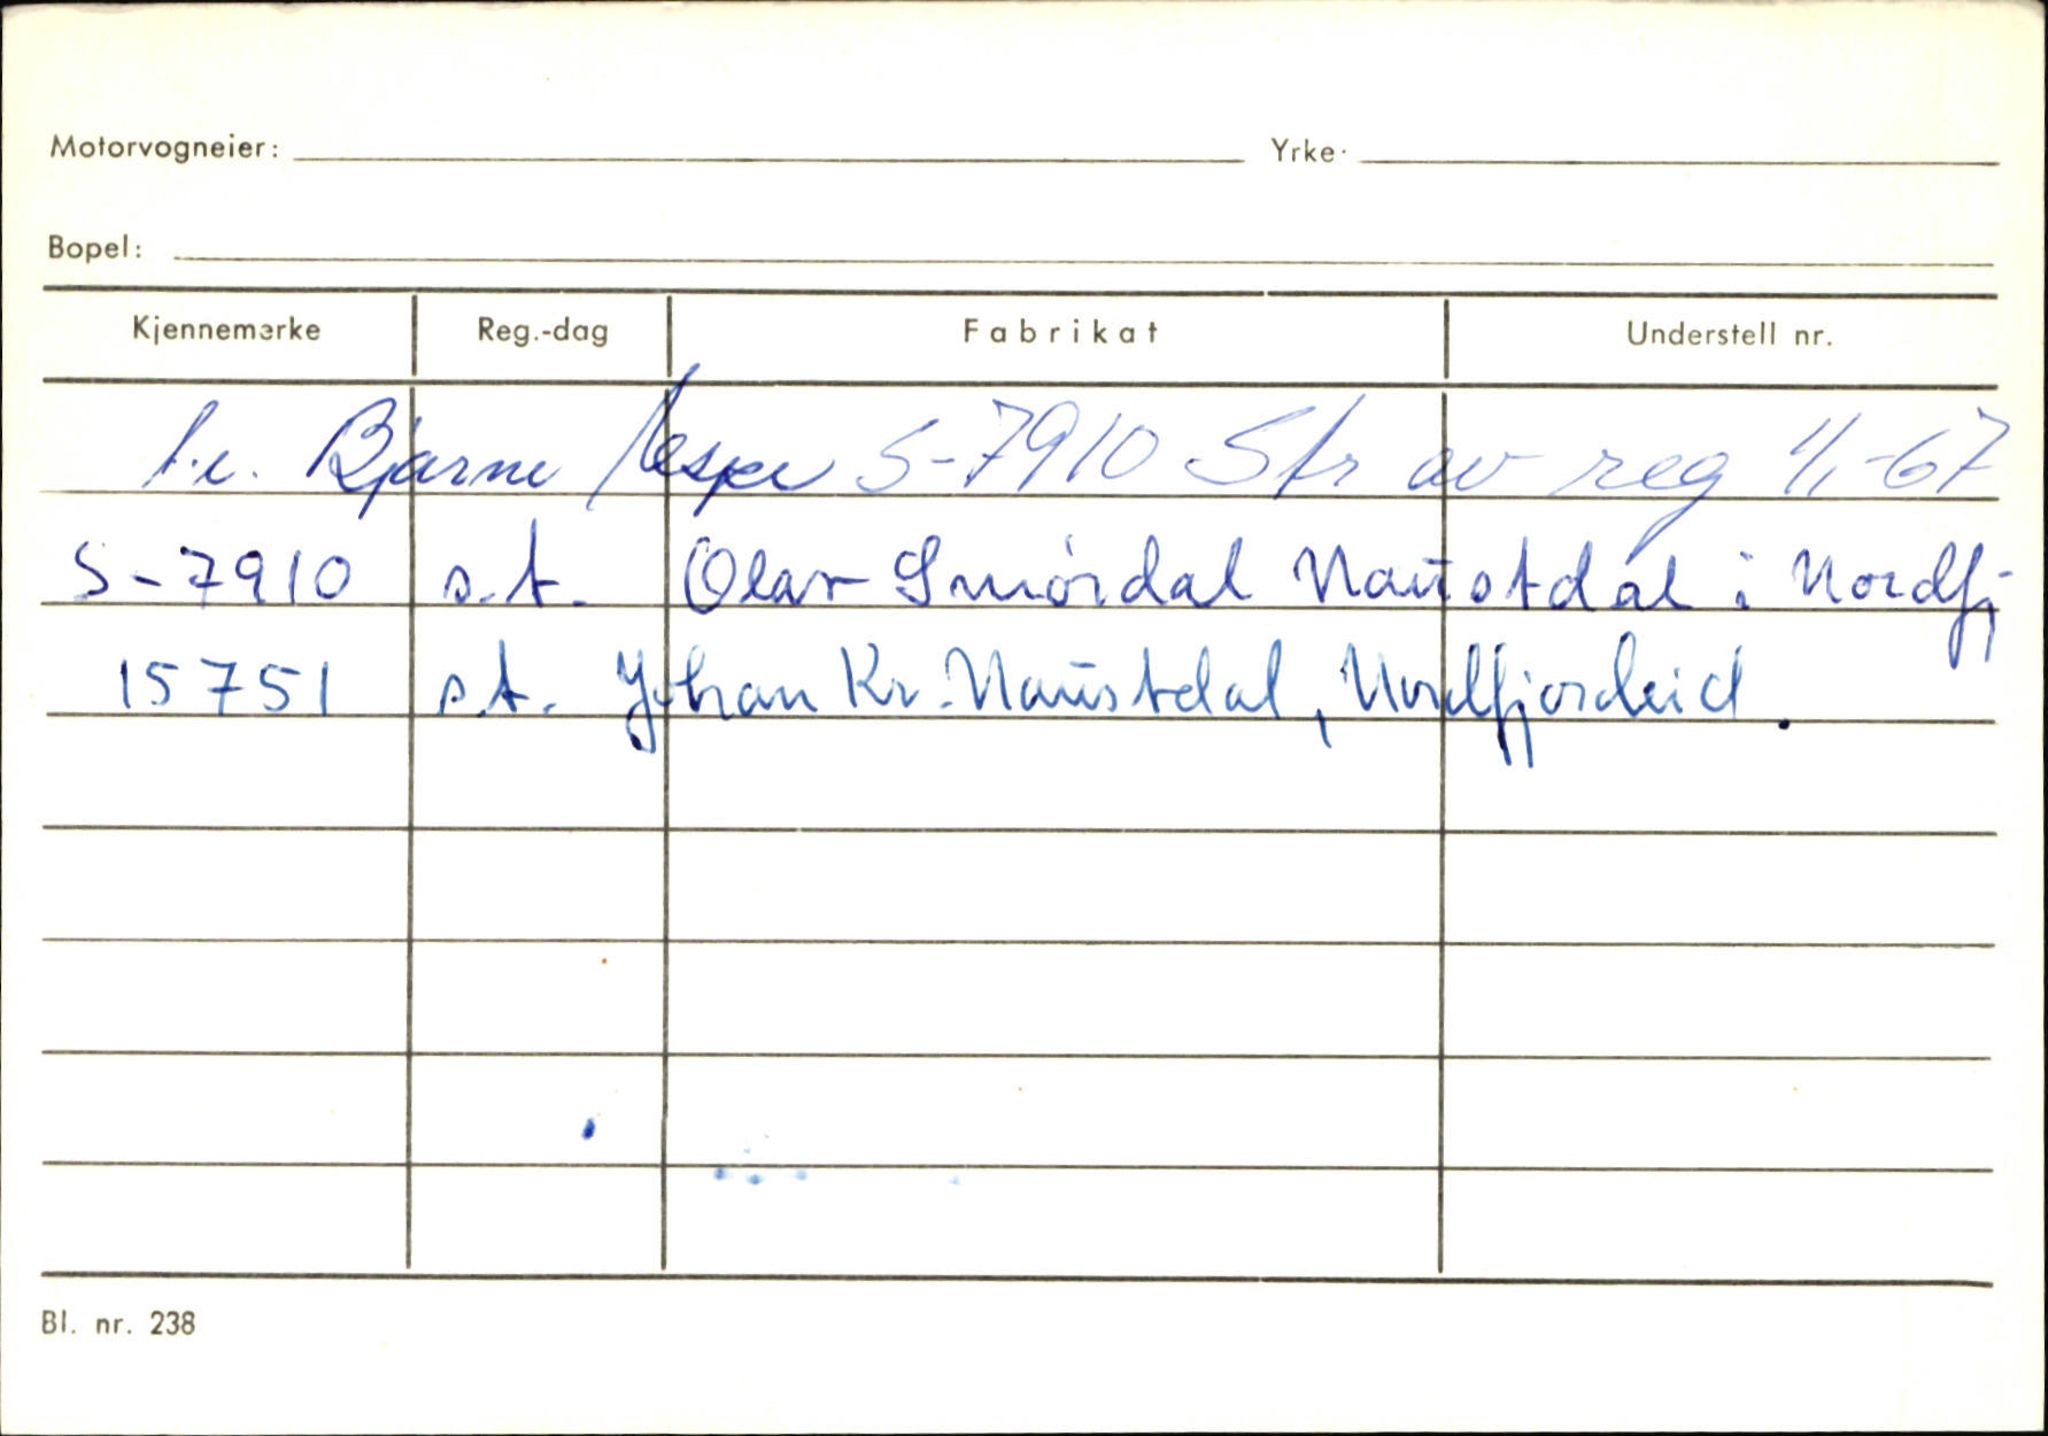 Motorvogneier: Yrke.
Bopel:
Kjennemerke Reg.-dag Fabrikat Understell nr.
Bjarne S-7910 Str av reg 1/1-67
S-7910 s.t. Olav Smørdal Naustdal i Nordfj
15751 s.t. Johan Kr. Naustdal, Nordfjordeid.
Bl. nr. 238